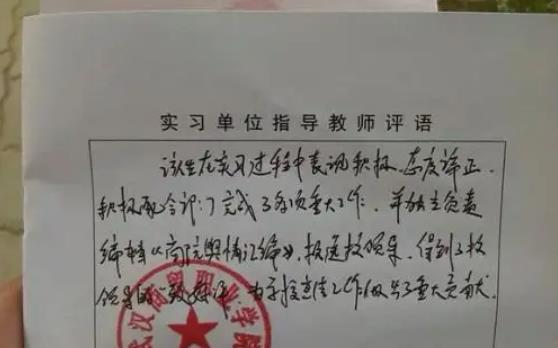 实习单位指导教师评语
该生在实习过程中表现积极、态度端正、
积极配合部门完成了各项重大工作，并独立负责
编辑《商院舆情汇编》，报送校领导，得到了校
领导的一致好评，为了我校宣传工作做出了重大贡献。
武汉商贸职业学院